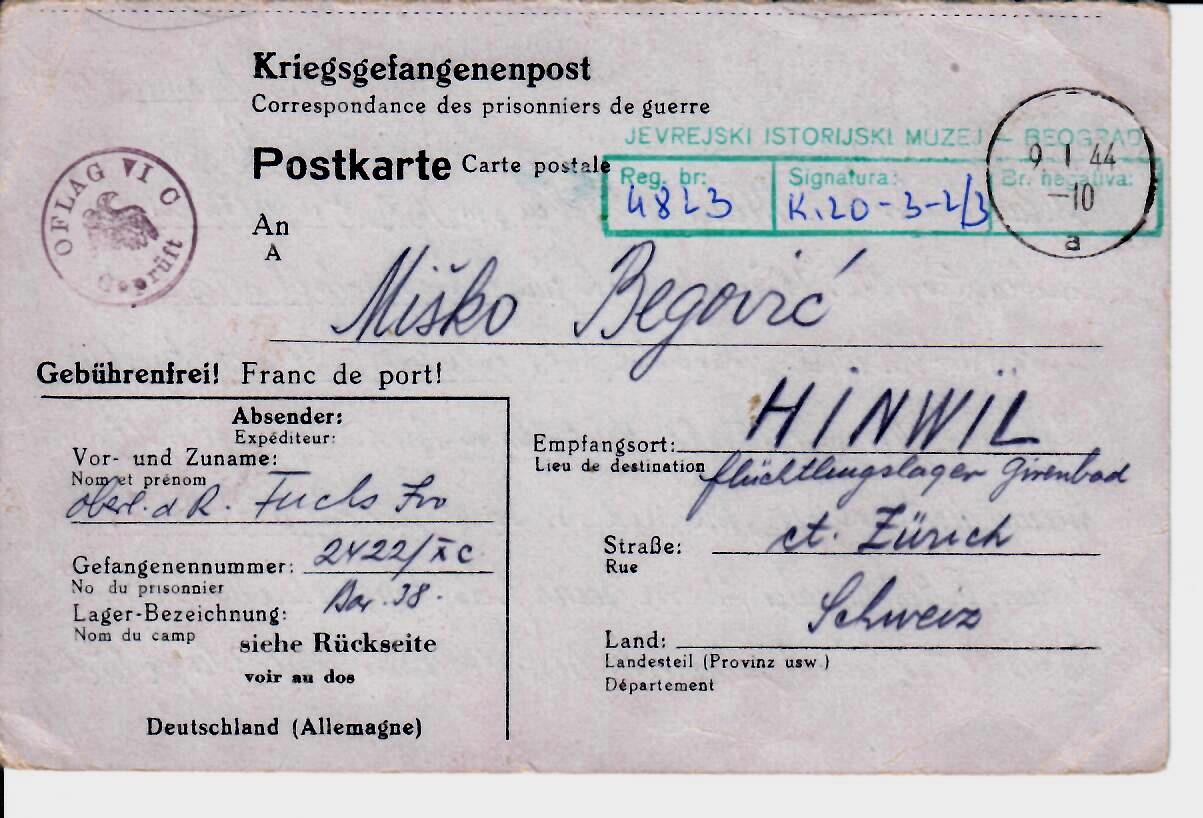 Kriegsgefangenenpost
Correspondance des prisonniers de guerre
JEVREJSKI ISTORIJSKI MUZEJ — BEOGRAD
Postkarte Carte postale
Reg. br: 4823
Signatura: K.20-3-2/3
Br. negativa:
9 1 44
-10
a
OFLAG VI C
Geprüft
An
A
Miško Begović
Gebührenfrei! Franc de port!
Absender:
Expéditeur:
Vor- und Zuname:
Nom et prénom
Oberl. d R. Fuchs Ivo
Gefangenennummer: 2422/XC
No du prisonnier
Lager-Bezeichnung: Bar. 38.
Nom du camp
siehe Rückseite
voir au dos
Deutschland (Allemagne)
Empfangsort: HINWIL
Lieu de destination
flüchtlingslager Girenbad
Straße: ct. Zürich
Rue
Schweiz
Land:
Landesteil (Provinz usw.)
Département